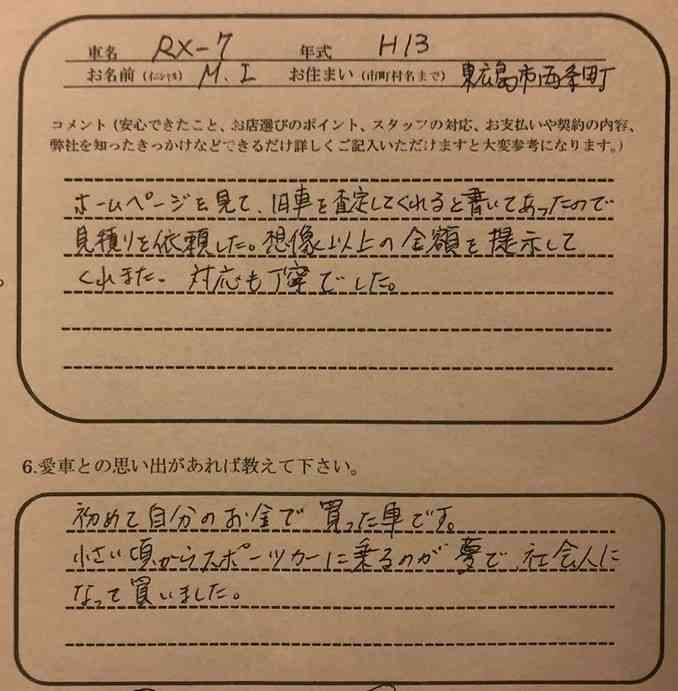 車名 RX-7 年式 H13
お名前(イニシャル) M.I お住まい(市町村名まで) 東広島市西条町
コメント(安心できたこと、お店選びのポイント、スタッフの対応、お支払いや契約の内容、
弊社を知ったきっかけなどできるだけ詳しくご記入いただけますと大変参考になります。)
ホームページを見て、旧車を査定してくれると書いてあったので
見積りを依頼した。想像以上の金額を提示して
くれました。対応も丁寧でした。
6.愛車との思い出があれば教えて下さい。
初めて自分のお金で買った車です。
小さい頃からスポーツカーに乗るのが夢で、社会人に
なって買いました。